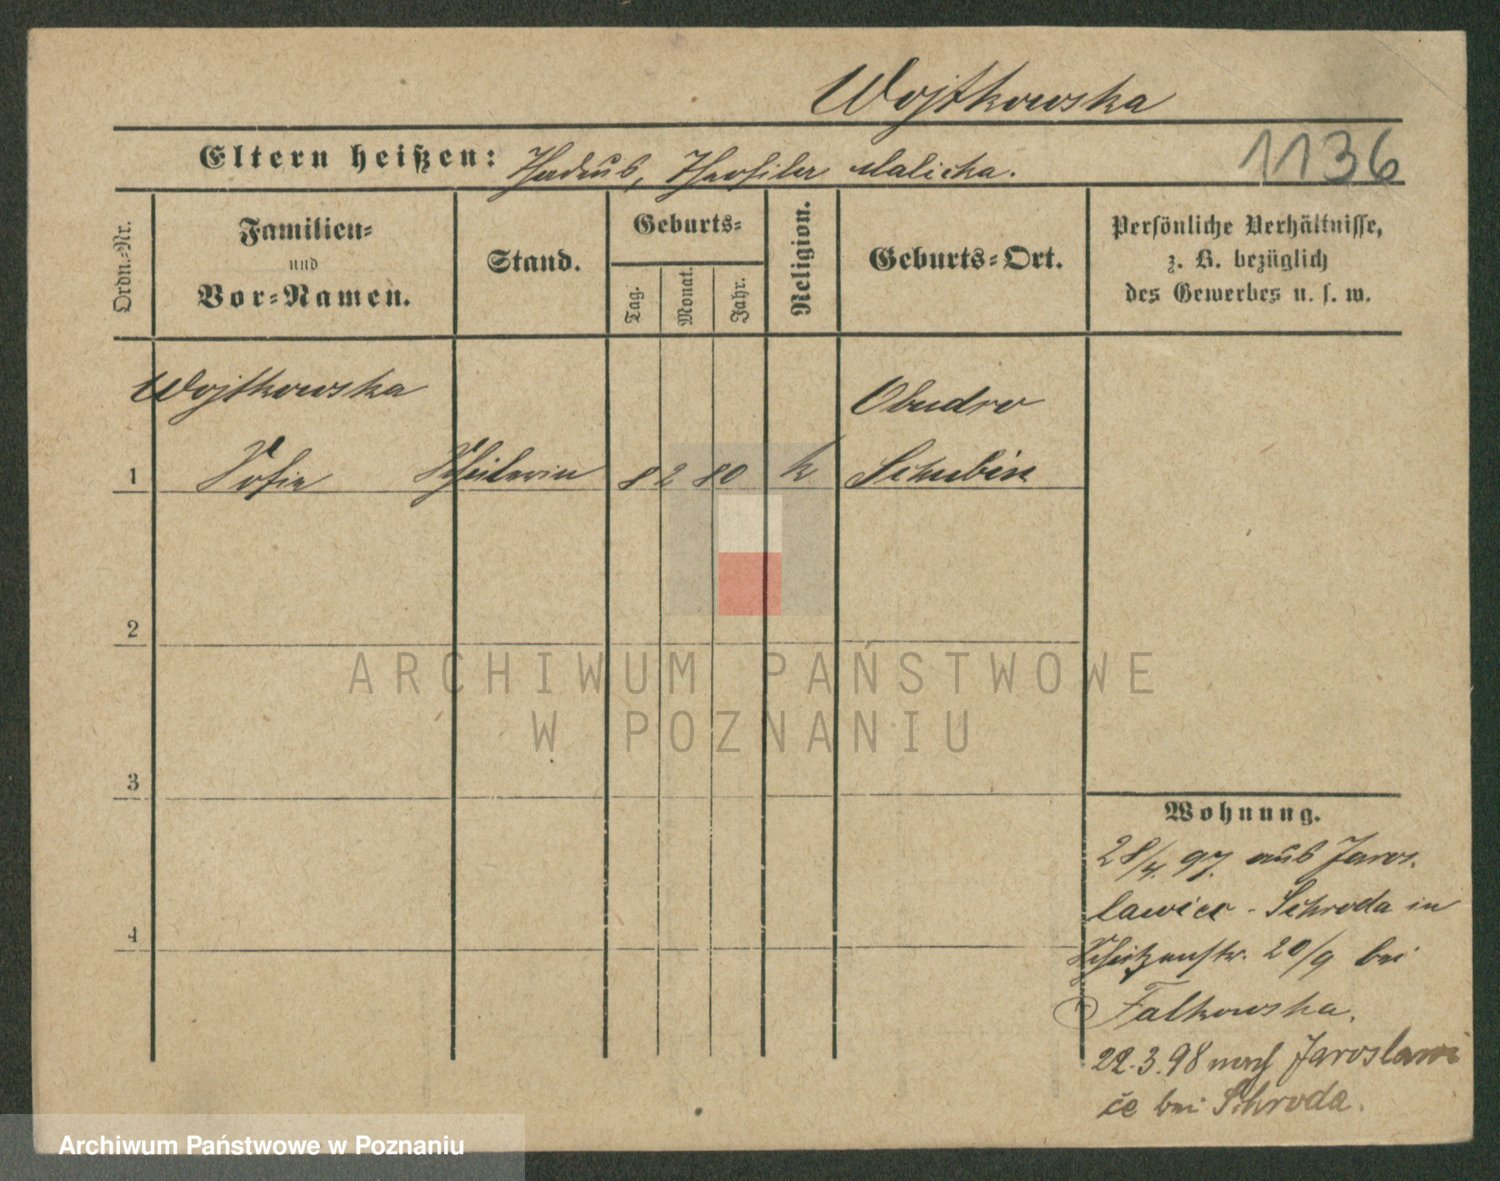 Wojtkowska
Eltern heißen: Malicka.
1136
Ordn.-Nr.
Familien-
und
Vor-Namen.
Stand.
Geburts-
Tag.
Monat.
Jahr.
Religion.
Geburts-Ort.
Persönliche Verhältnisse,
z. B. bezüglich
des Gewerbes u. s. w.
Wojtkowska
Obudno
1 Sofie Schülerin 8 2 80 k Schubin
2
3
4
ARCHIWUM PAŃSTWOWE
W POZNANIU
Wohnung.
28/4. 97. aus Jaros-
lawice - Schroda in
Schützenstr. 20/9 bei
Falkowska.
22.3.98 nach Jaroslawi
ce bei Schroda.
Archiwum Państwowe w Poznaniu